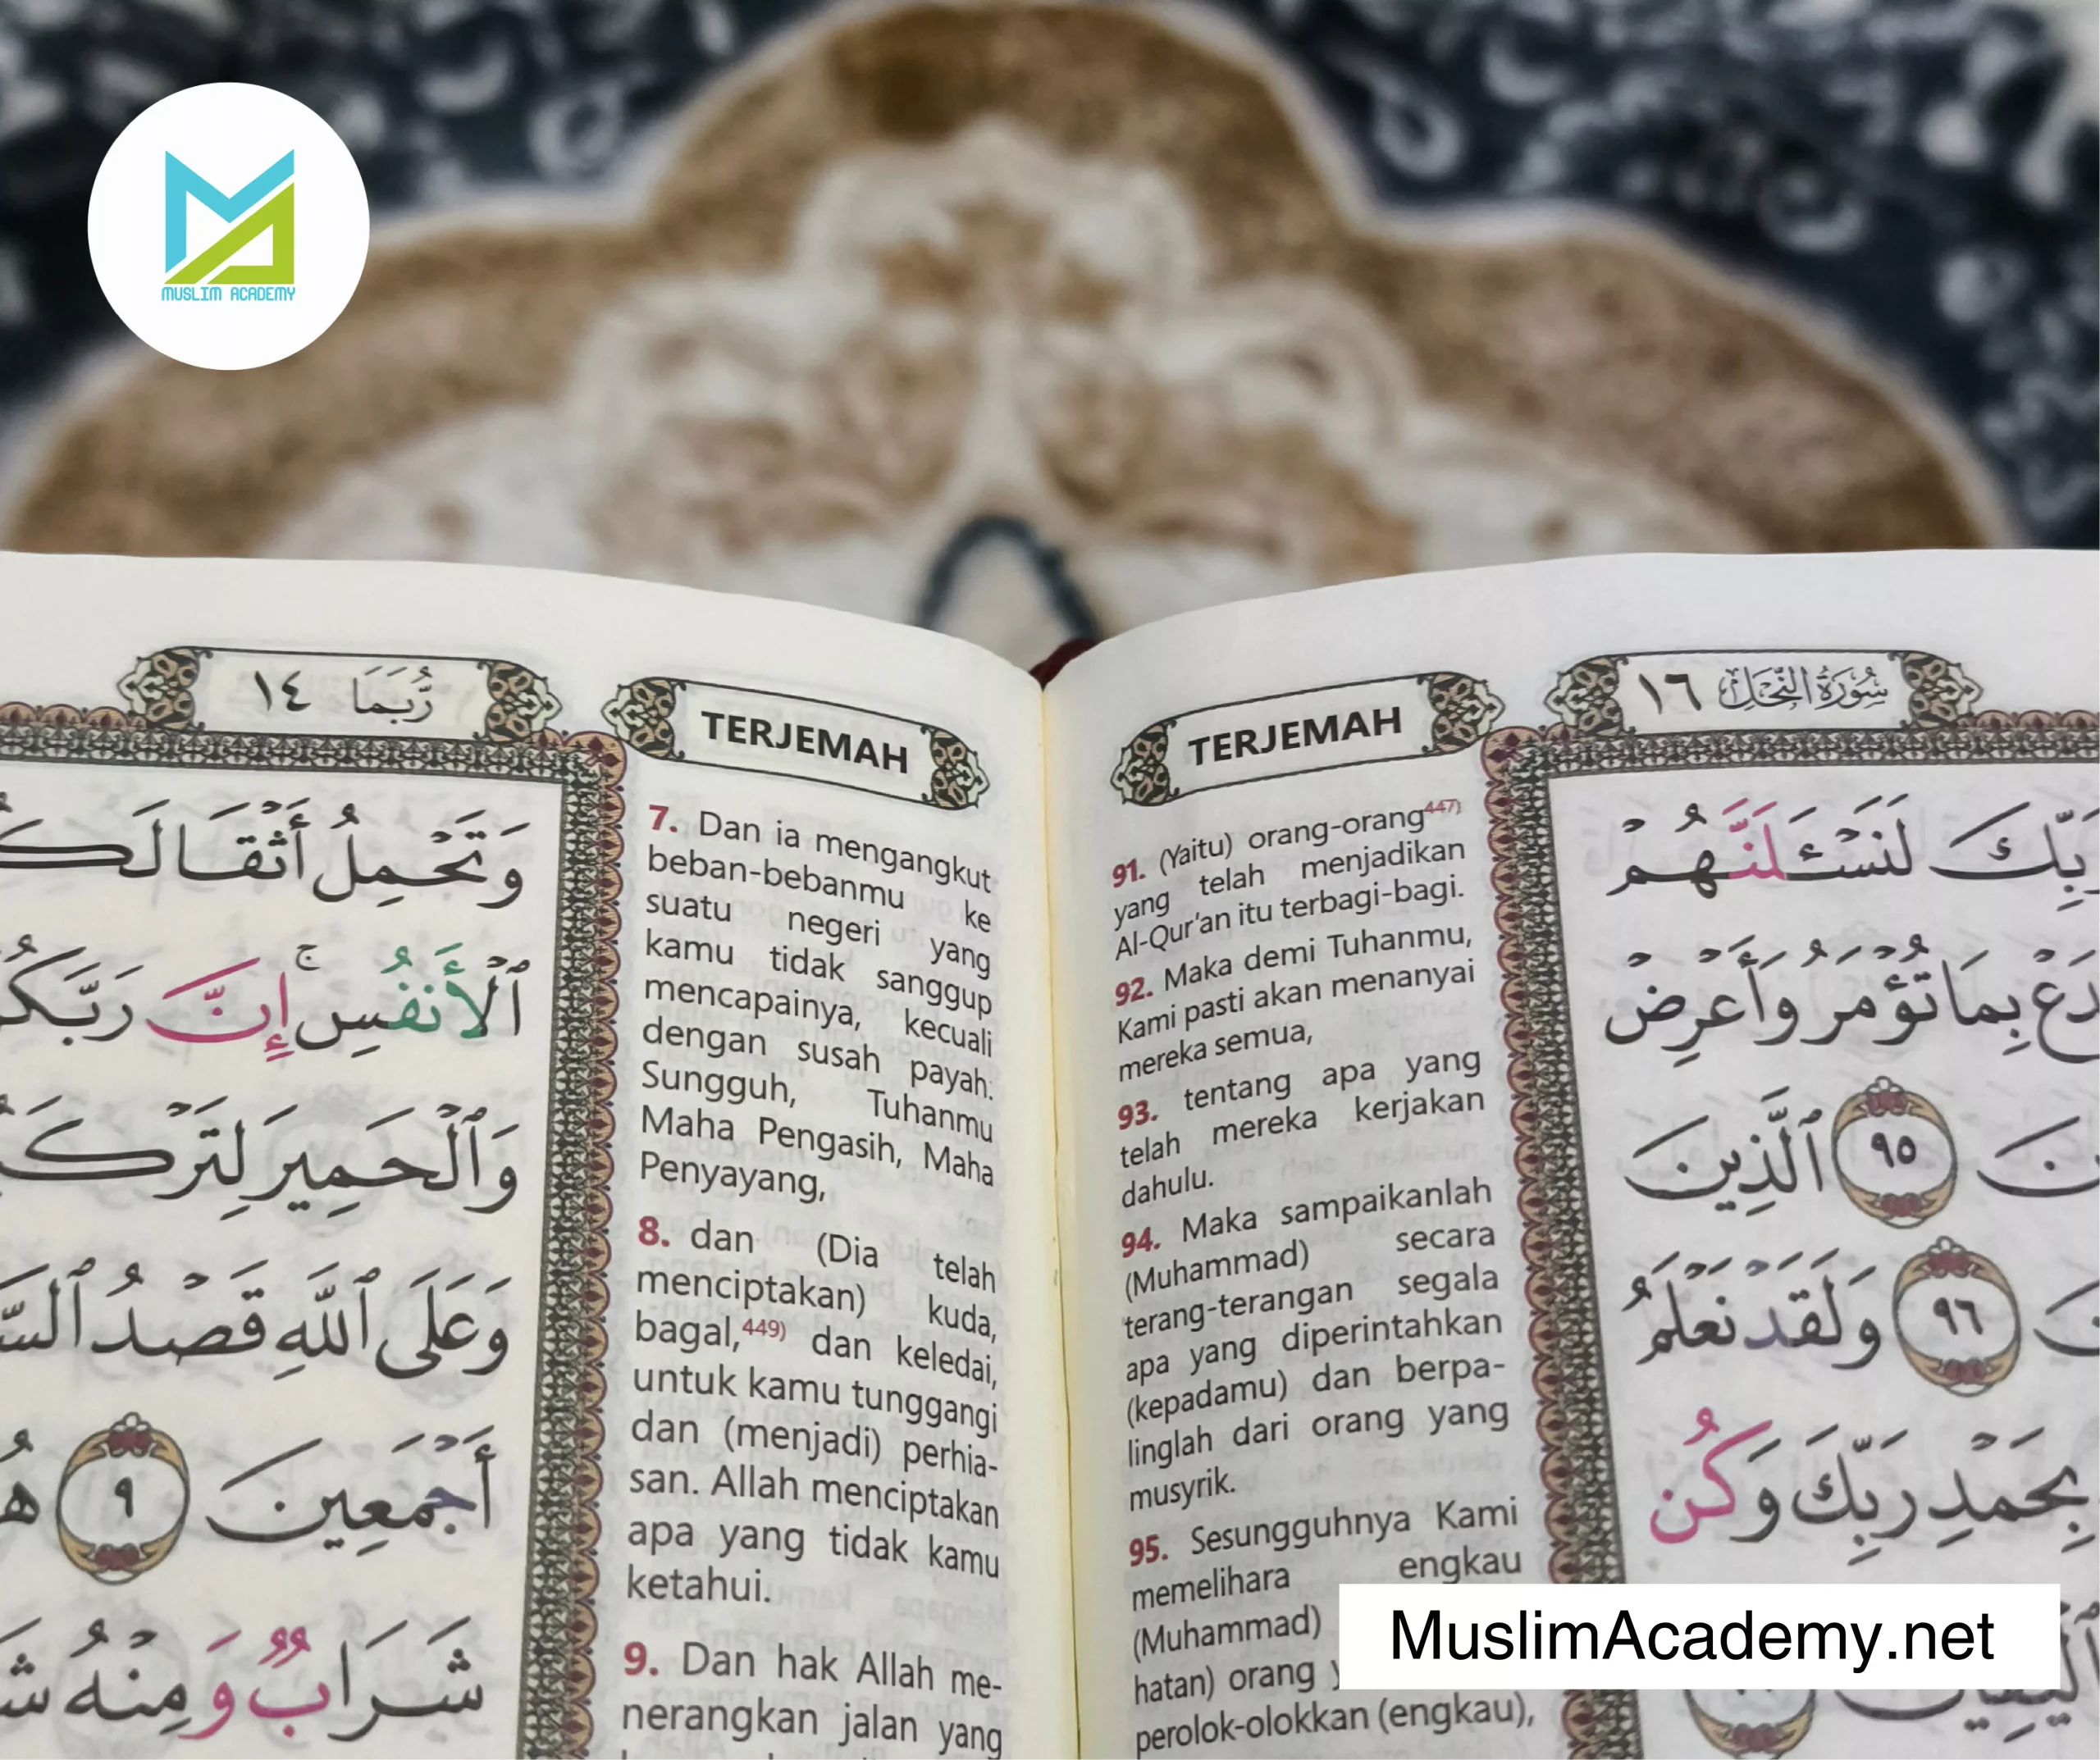 MUSLIM ACADEMY
رُبَمَا ١٤
TERJEMAH
وَتَحْمِلُ أَثْقَالَكُ
ٱلْأَنفُسِ ۚ إِنَّ رَبَّكُ
وَٱلْحَمِيرَ لِتَرْكَ
وَعَلَى ٱللَّهِ قَصْدُ ٱلسَّ
أَجْمَعِينَ ٩ هُ
شَرَابٌ وَمِنْهُ شَ
7. Dan ia mengangkut
beban-bebanmu ke
suatu negeri yang
kamu tidak sanggup
mencapainya, kecuali
dengan susah payah.
Sungguh, Tuhanmu
Maha Pengasih, Maha
Penyayang,
8. dan (Dia telah
menciptakan) kuda,
bagal,449) dan keledai,
untuk kamu tunggangi
dan (menjadi) perhia-
san. Allah menciptakan
apa yang tidak kamu
ketahui.
9. Dan hak Allah me-
nerangkan jalan yang
TERJEMAH
سُورَةُ النَّحْلِ ١٦
91. (Yaitu) orang-orang447)
yang telah menjadikan
Al-Qur'an itu terbagi-bagi.
92. Maka demi Tuhanmu,
Kami pasti akan menanyai
mereka semua,
93. tentang apa yang
telah mereka kerjakan
dahulu.
94. Maka sampaikanlah
(Muhammad) secara
terang-terangan segala
apa yang diperintahkan
(kepadamu) dan berpa-
linglah dari orang yang
musyrik.
95. Sesungguhnya Kami
memelihara engkau
(Muhammad)
hatan) orang
perolok-olokkan (engkau),
بِّكَ لَنَسْـَٔلَنَّهُمْ
دَعْ بِمَا تُؤْمَرُ وَأَعْرِضْ
نَ ٩٥ ٱلَّذِينَ
نَ ٩٦ وَلَقَدْ نَعْلَمُ
بِحَمْدِ رَبِّكَ وَكُن
MuslimAcademy.net